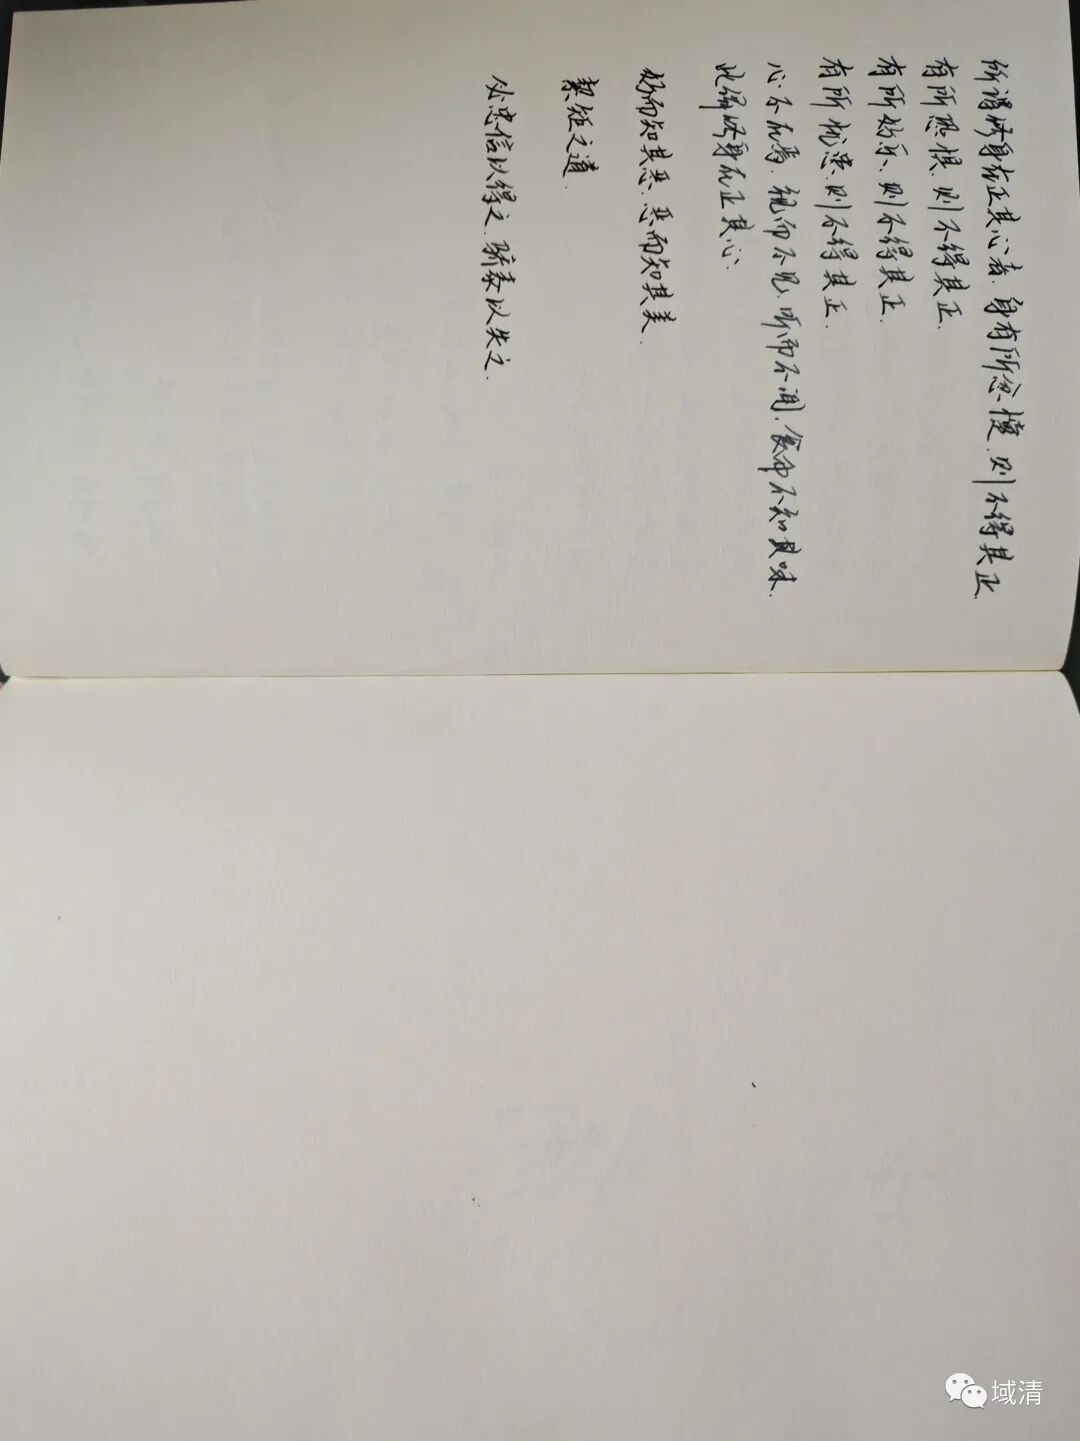 所谓修身在正其心者,身有所忿懥,则不得其正.
有所恐惧,则不得其正.
有所好乐,则不得其正.
有所忧患,则不得其正.
心不在焉,视而不见,听而不闻,食而不知其味.
此谓修身在正其心.
好而知其恶,恶而知其美.
絜矩之道.
必忠信以得之,骄泰以失之.
域清